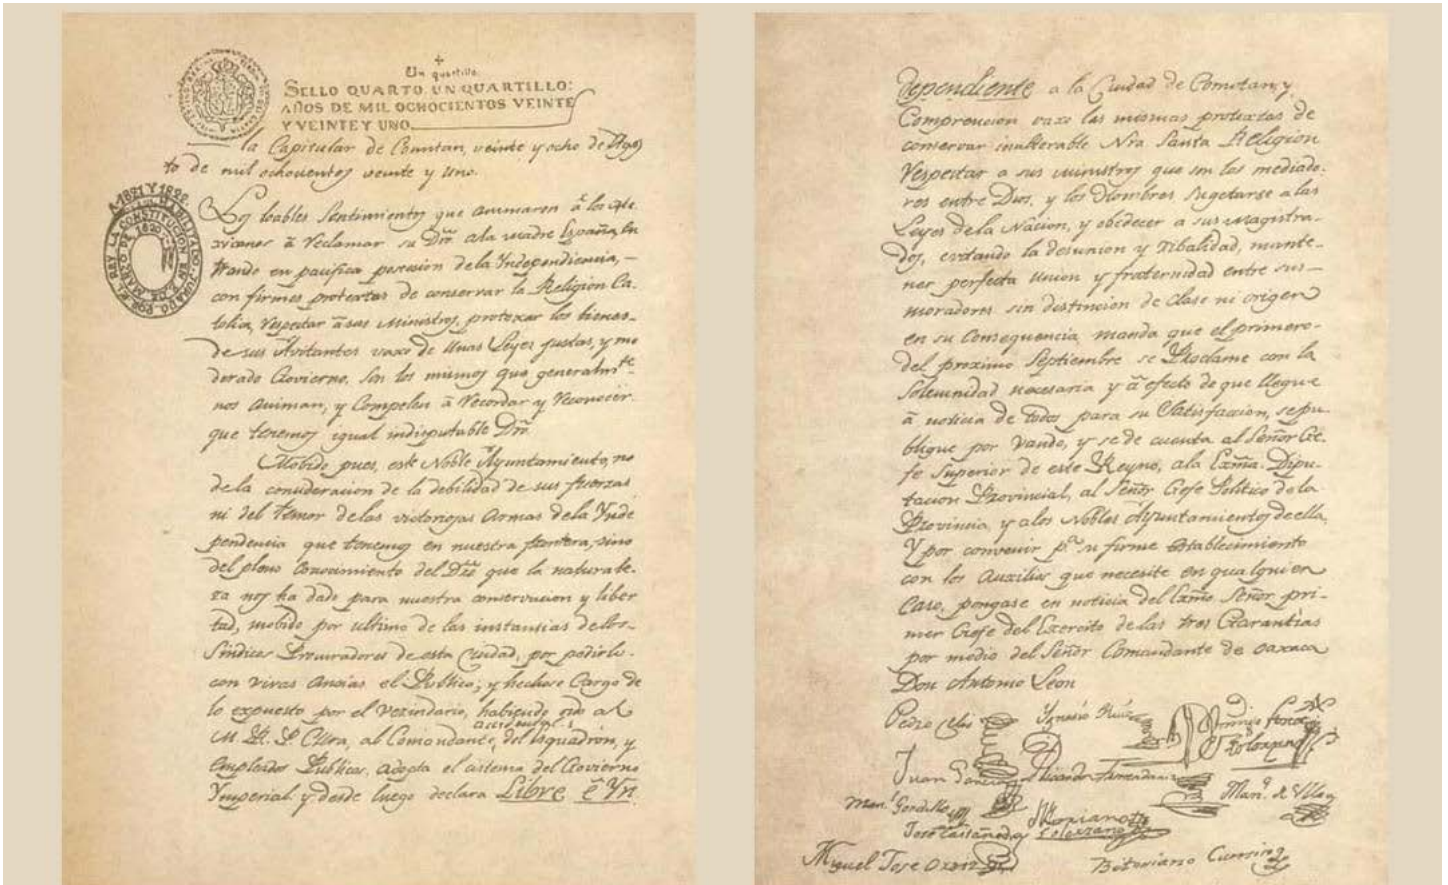 Un quartillo.
SELLO QUARTO, UN QUARTILLO:
AÑOS DE MIL OCHOCIENTOS VEINTE
Y VEINTE Y UNO.
la Capitular de Comitan, veinte y ocho de Agos
to de mil ochocientos veinte y uno.
A 1821 Y 1822.
HABILITADO, JURADO POR EL REY LA CONSTITUCION EN 9 DE MARZO DE 1820
Los loables Sentimientos que animaron â los Me
xicanos â Reclamar su Dro̅ â la Madre España, en
trando en pacifica posesion de la Yndependiencia, –
con firmes protextas de conservar la Religion Ca-
tolica, Respetar â sus Ministros, protexer los bienes-
de sus Avitantes vaxo de Unas Leyes justas, y mo
derado Govierno, son los mismos que generalmte
nos animan, y Compelen â Recordar y Reconocer
que tenemos igual indisputable Dro̅
Mobido pues, este Noble Ayuntamiento, no
de la consideracion de la debilidad de sus fuerzas
ni del temor de las victoriosas Armas de la Ynde
pendencia que tenemos en nuestra frontera, sino
del pleno Conocimiento del Dro̅ que la naturale-
za nos ha dado para nuestra conservacion y liber
tad, mobido por ultimo de las instancias de los-
Sindicos Procuradores de esta Ciudad, por pedirlo-
con vivas ancias el Publico; y hechose Cargo de
lo expuesto por el Vezindario, habiendo oido al
M. R. P. CUra, al Comandante accidental, del esquadron, y
Empleados Publicos, adopta el cistema del Govierno
Ymperial y desde luego declara Libre ê Yn
dependiente a la Ciudad de Comitan, y
Comprencion vaxo las mismas protextas de
conservar inalterable Nra Santa Religion
Respetar a sus ministros que son los mediado-
ros entre Dios, y los Hombres sugetarse a las
Leyes de la Nacion, y obedecer a sus Magistra-
dos, evitando la desunion y Ribalidad, mante-
ner perfecta union y fraternidad entre sus –
moradores sin distincion de clase ni origen
en su Consequencia, manda que el primero-
del proximo Septiembre se Proclame con la
Solemnidad necesaria y â efecto de que llegue
â noticia de todos para su Satisfaccion, se pu-
blique por Vando, y se de cuenta al Señor Ge-
fe Superior de este Reyno, a la Exma. Dipu-
tacion Provincial, al Señor Gefe Politico de la
Provincia, y a los Nobles Ayuntamientos de ella,
Y por convenir pa. su firme establecimiento
con los Auxilios que necesite en qualquier
Caso, pongase en noticia del Exmo. Señor pri-
mer Gefe del Exercito de las tres Garantias
por medio del Señor Comandante de Oaxaca
Don Antonio Leon
Pedro Celis Ygnasio Ruiz
Solorzano
Juan
Manl. Gordillo Manl. de Villa
Jose Castañeda Mariano Solorzano
Miguel Jose Ortiz Bitoriano